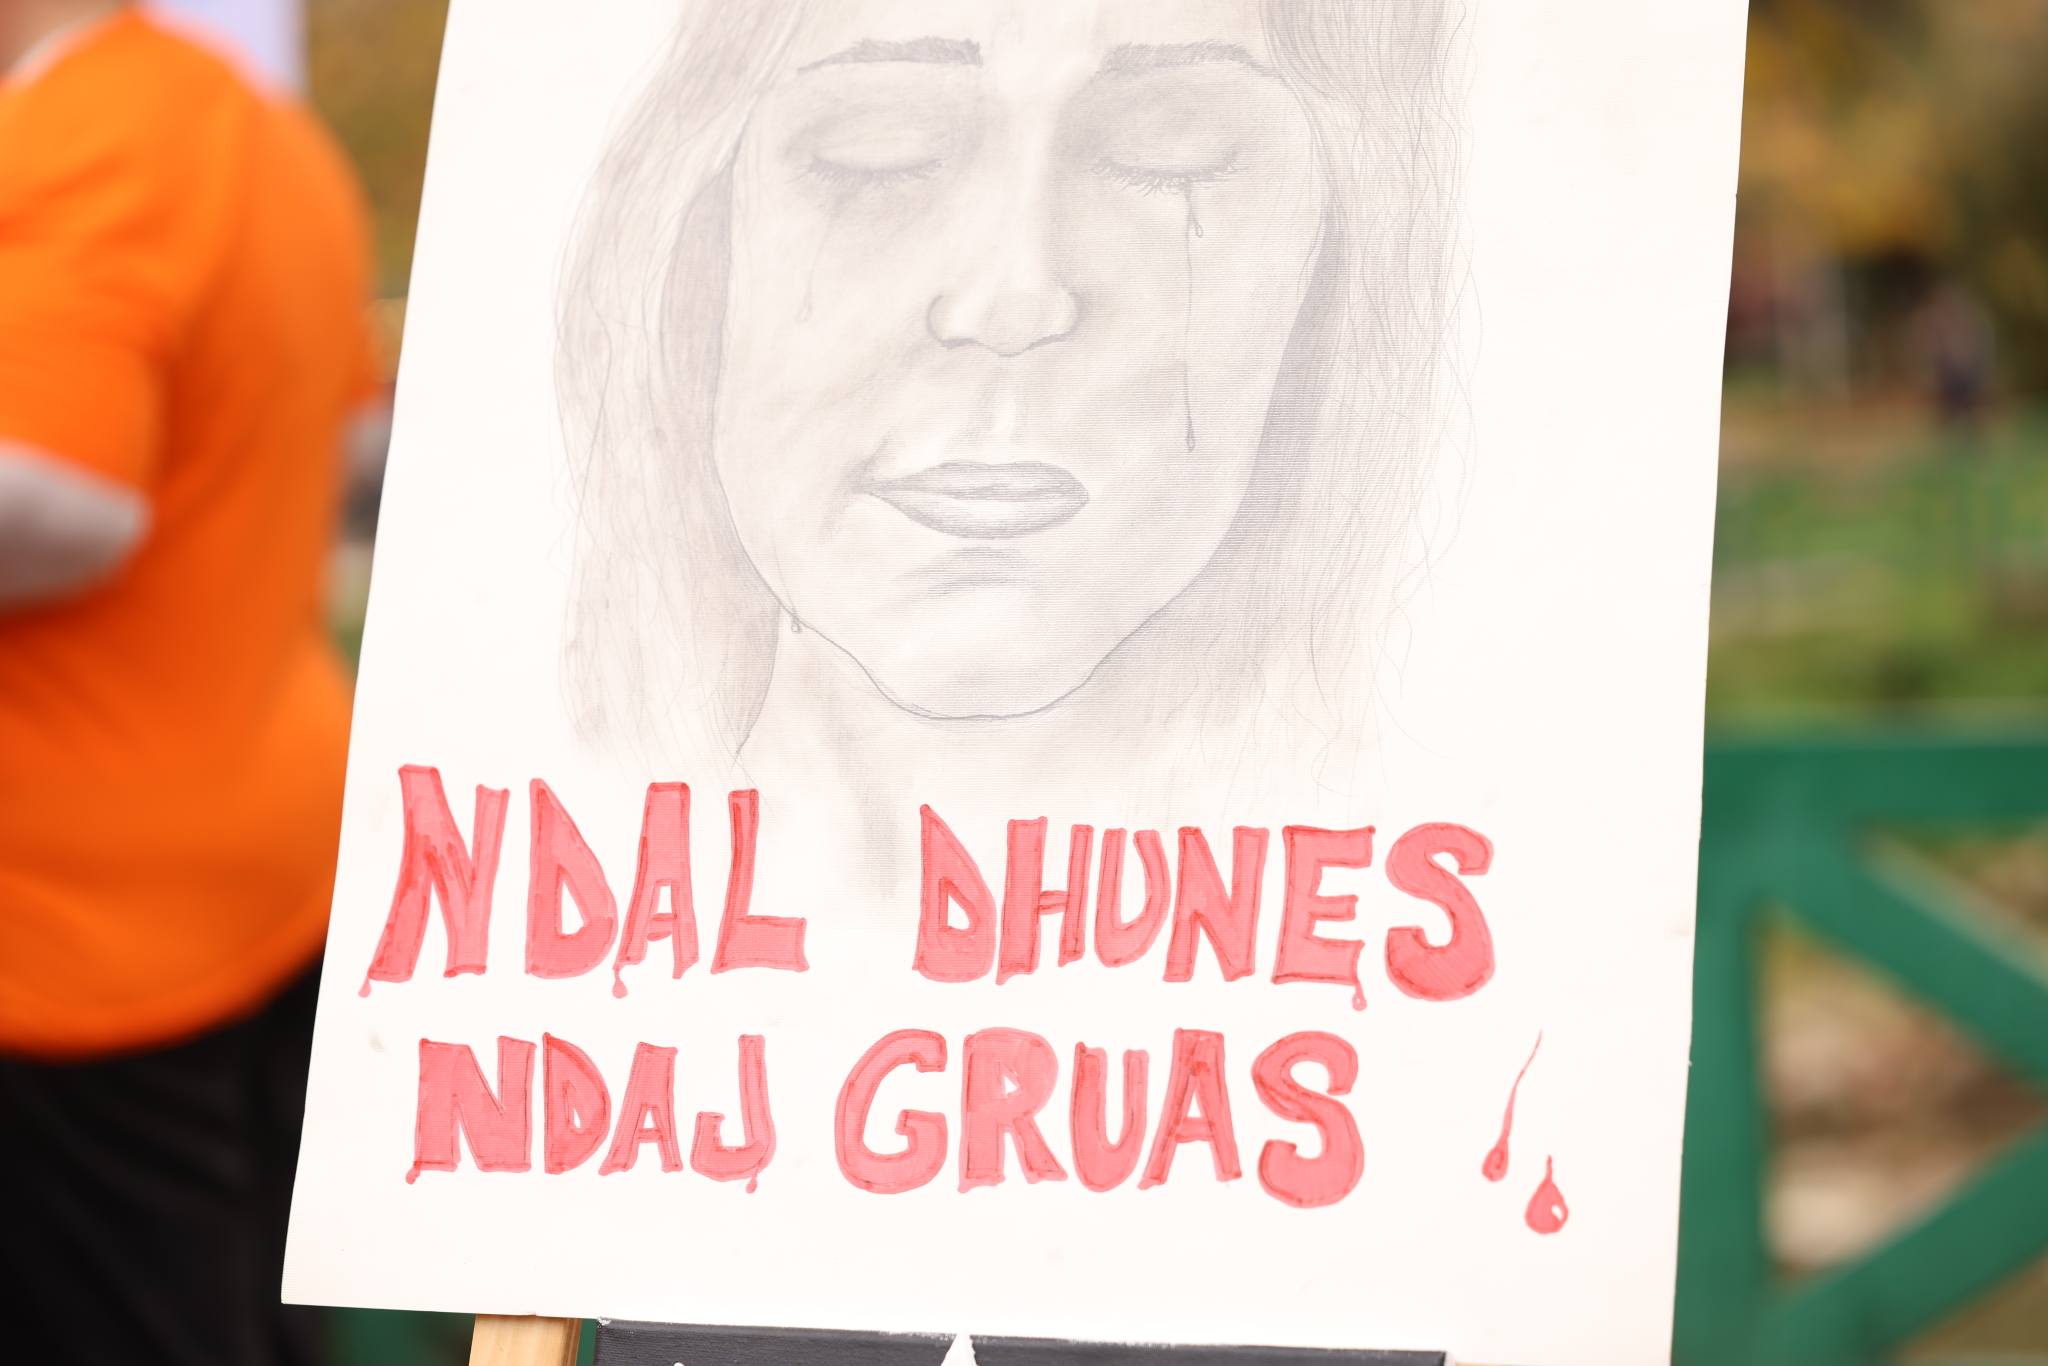 NDAL DHUNES
NDAJ GRUAS